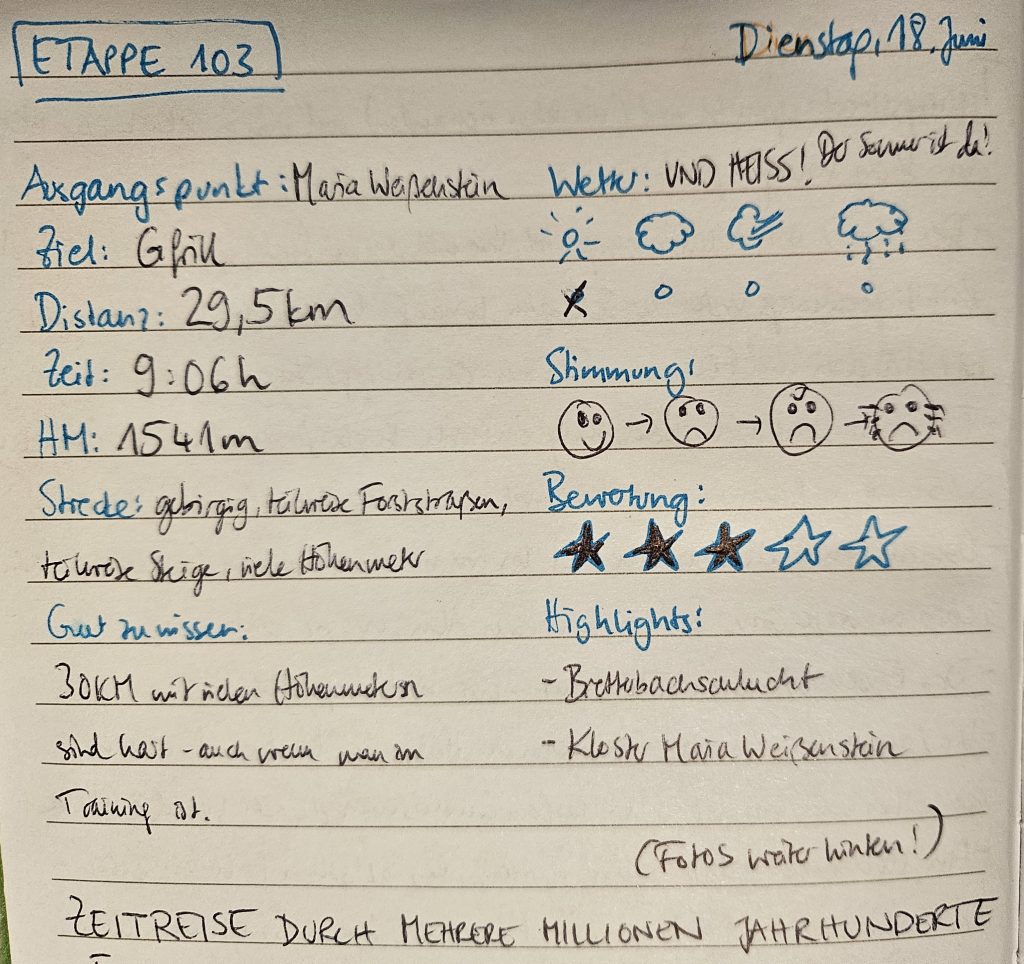 ETAPPE 103
Dienstag, 18. Juni
Ausgangspunkt: Maria Weißenstein
Ziel: Gfrill
Distanz: 29,5 km
Zeit: 9:06h
HM: 1541m
Strecke: gebirgig, teilweise Forststraßen,
teilweise Steige, viele Höhenmeter
Gut zu wissen:
30KM mit vielen Höhenmetern
sind hart - auch wenn man im
Training ist.
Wetter: UND HEISS! Der Sommer ist da!
Stimmung:
Bewertung:
Highlights:
- Bletterbachschlucht
- Kloster Maria Weißenstein
(Fotos weiter hinten!)
ZEITREISE DURCH MEHRERE MILLIONEN JAHRHUNDERTE